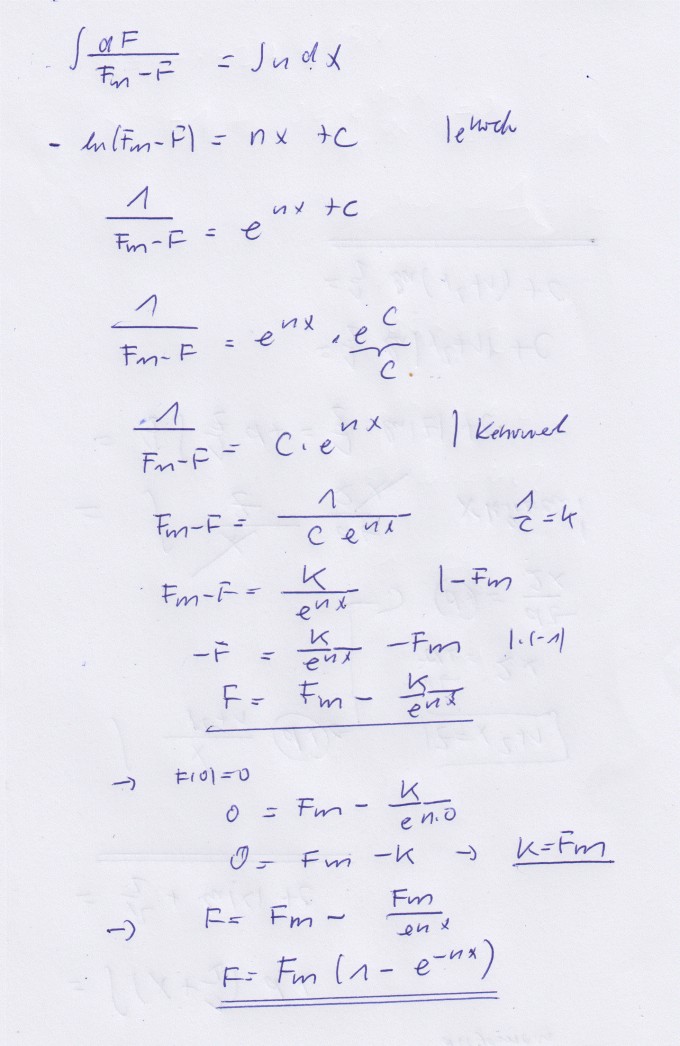 ∫ dF / (Fm - F) = ∫ n dx
- ln(Fm - F) = nx + C | e hoch
1 / (Fm - F) = e^(nx + C)
1 / (Fm - F) = e^(nx) · e^C
C
1 / (Fm - F) = C · e^(nx) | Kehrwert
Fm - F = 1 / (C e^(nx)) 1/C = K
Fm - F = K / e^(nx) | - Fm
- F = K / e^(nx) - Fm | · (-1)
F = Fm - K / e^(nx)
→ F(0) = 0
0 = Fm - K / e^(n·0)
0 = Fm - K → K = Fm
→ F = Fm - Fm / e^(nx)
F = Fm (1 - e^(-nx))